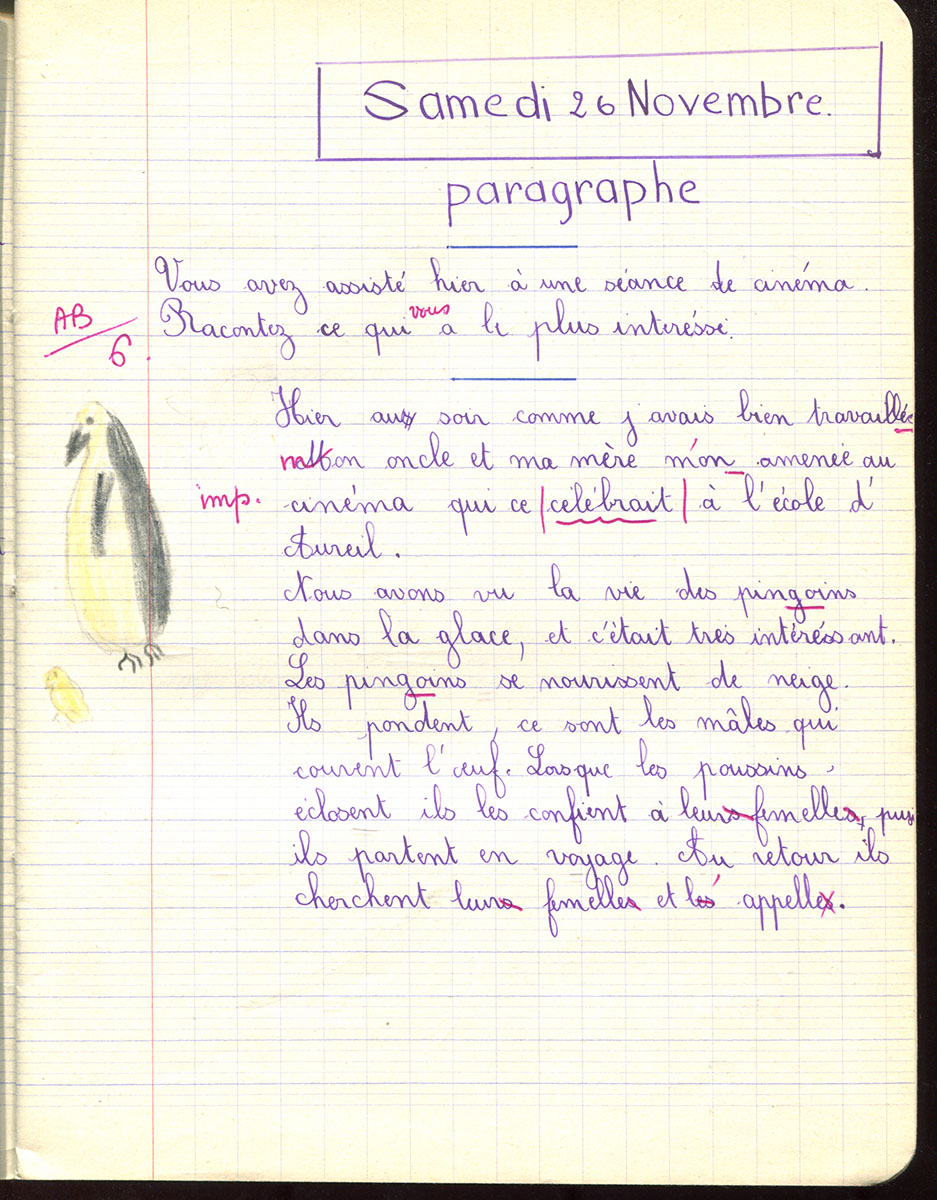 Samedi 26 Novembre.
paragraphe
Vous avez assisté hier à une séance de cinéma.
AB
6.
Racontez ce qui vous a le plus interéssé.
Hier au soir comme j'avais bien travaillée
mon oncle et ma mère m'on amenée au
imp.
cinéma qui ce célébrait à l'école d'
Aureil.
Nous avons vu la vie des pingoins
dans la glace, et c'était tres intéréssant.
Les pingoins se nourissent de neige.
Ils pondent, ce sont les mâles qui
couvent l'œuf. Lorsque les poussins
éclosent ils les confient à leurs femelles, puis
ils partent en voyage. Au retour ils
cherchent leurs femelles et les appelle.